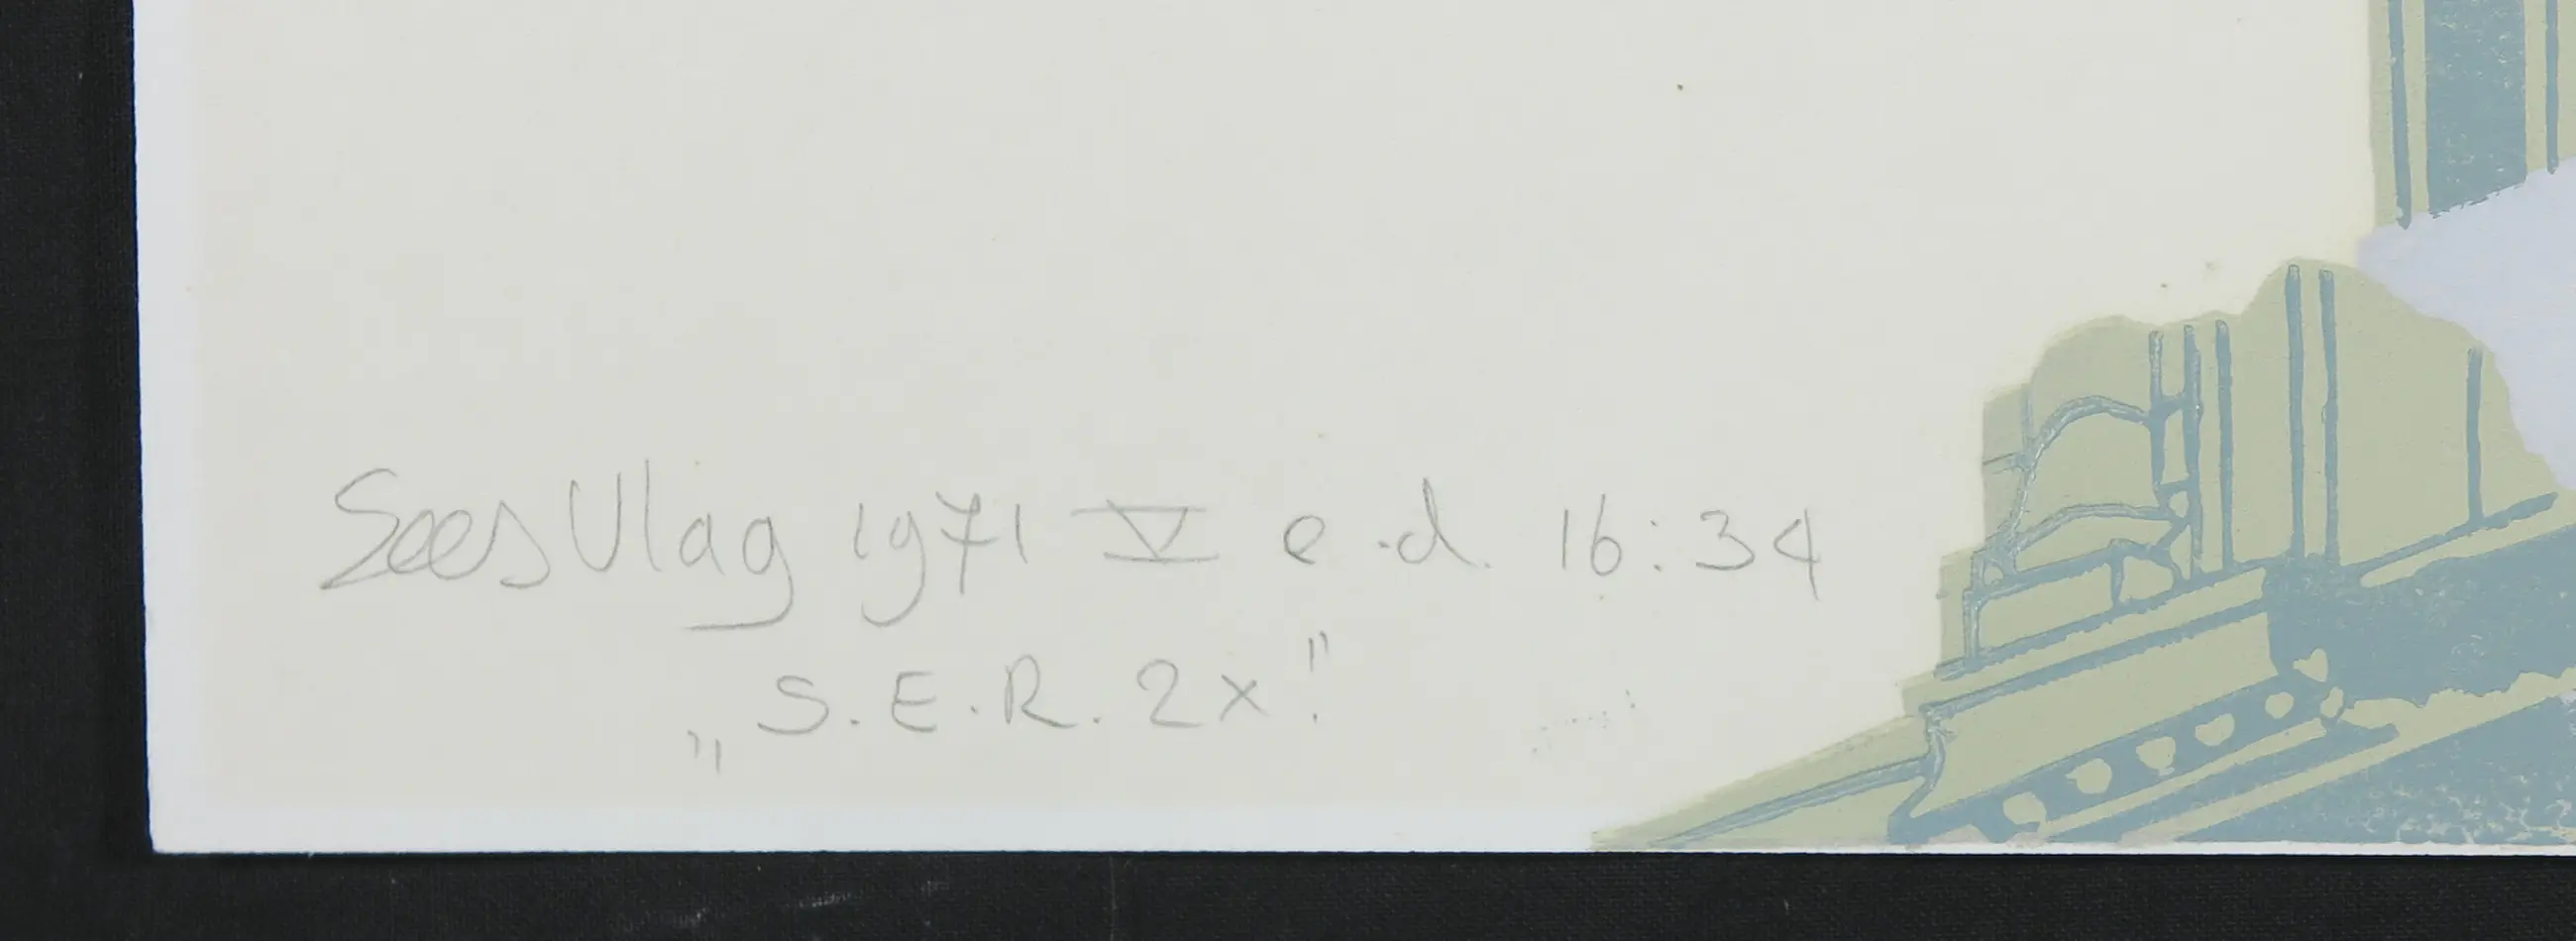 Sees Vlag 1971 V e.d. 16:34
„S.E.R. 2x!"